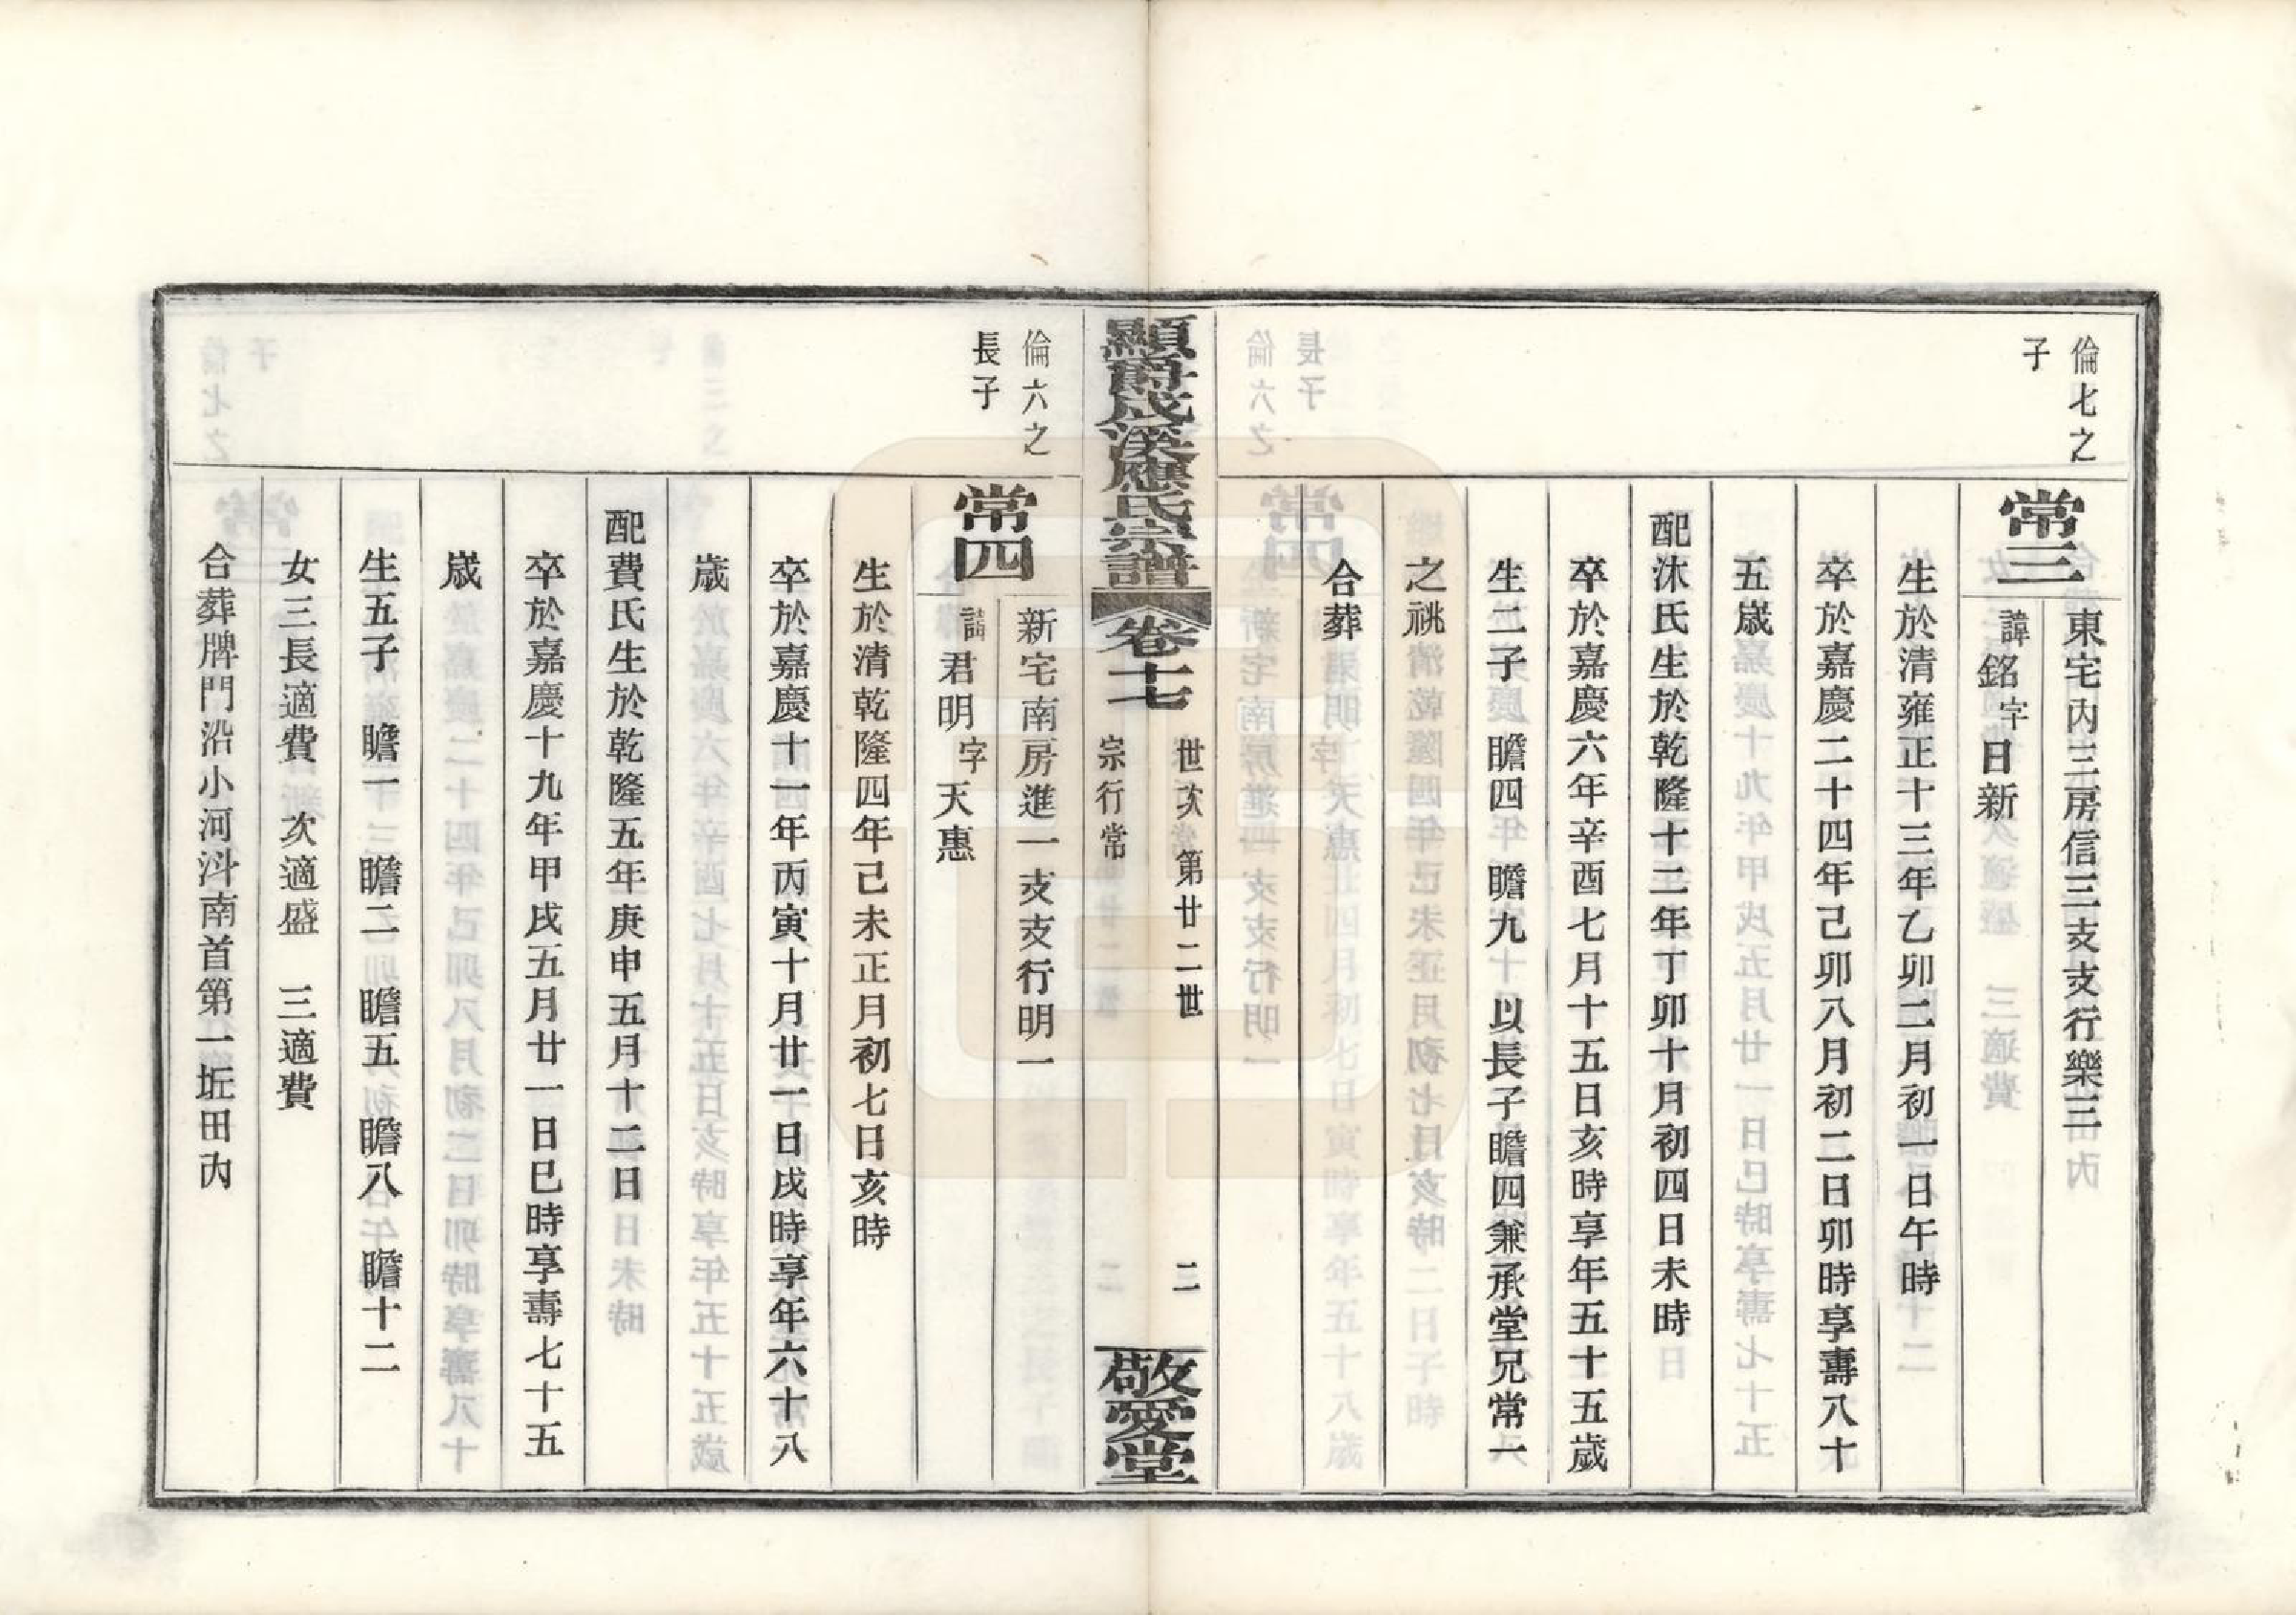 倫七之
子
常三
東宅內三房信三支支行樂三
諱銘字日新
生於清雍正十三年乙卯二月初一日午時
卒於嘉慶二十四年己卯八月初二日卯時享壽八十
五歲
配沐氏生於乾隆十二年丁卯十月初四日未時
卒於嘉慶六年辛酉七月十五日亥時享年五十五歲
生二子　瞻四　瞻九　以長子瞻四兼承堂兄常一
之祧
合葬
顯爵成溪應氏宗譜
卷十七
世次　第廿二世
宗行常
二
敬愛堂
倫六之
長子
常四
新宅南房進一支支行明一
諱君明字天惠
生於清乾隆四年己未正月初七日亥時
卒於嘉慶十一年丙寅十月廿一日戌時享年六十八
歲
配費氏生於乾隆五年庚申五月十二日
卒於嘉慶十九年甲戌五月廿一日巳時享壽七十五
歲
生五子　瞻一　瞻二　瞻五　瞻八　瞻十二
女三長適費　次適盛　三適費
合葬牌門沿小河㳆南首第一坵田內